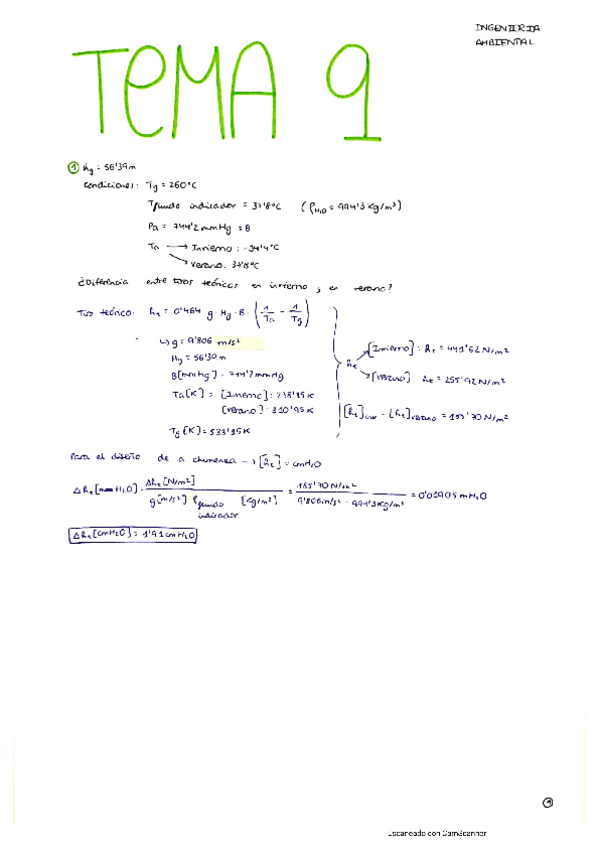 INGENIERIA
AMBIENTAL
TEMA 9
① Hg = 56'39m
Condiciones: Tg = 260°C
Tfluido indicador = 37'8°C (ρH2O = 994'3 Kg/m³)
Pa = 744'2 mmHg = B
Ta → Invierno: -34'4°C
→ Verano: 37'8°C
¿Diferencia entre tiros teóricos en invierno y en verano?
Tiro teórico: ht = 0'464 g · Hg · B · (1/Ta - 1/Tg)
↳ g = 9'806 m/s²
Hg = 56'30m
B[mmHg] = 744'2 mmHg
Ta[K] = [Invierno]: 238'75 K
[Verano]: 310'95 K
Tg [K] = 533'15 K
ht → [Invierno]: ht = 441'62 N/m²
→ [Verano]: ht = 255'92 N/m²
[ht]inv - [ht]verano = 185'70 N/m²
Para el diseño de a chimenea → [ht] = cmH2O
Δht[mmH2O] = Δht[N/m²] / g[m/s²] ρfluido indicador [Kg/m³] = 185'70 N/m² / 9'806m/s² · 994'3Kg/m³ = 0'01905 mH2O
Δht [cmH2O] = 1'91 cmH2O
①
Escaneado con CamScanner